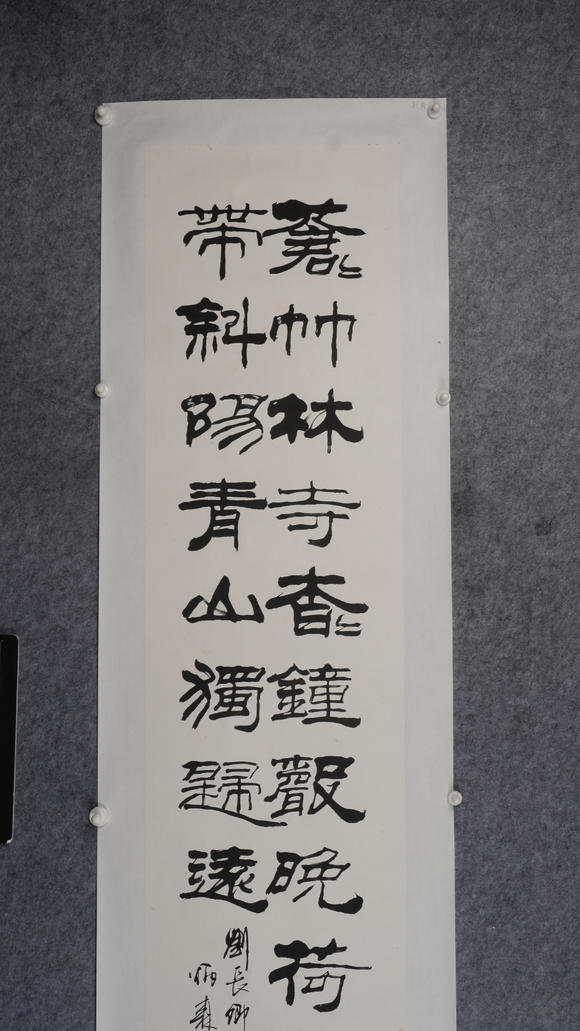 蒼〻竹林寺杳〻鐘聲晚荷
帶斜陽青山獨歸遠
劉長卿
炳森